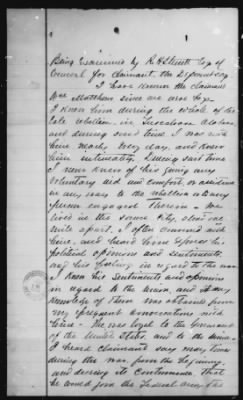 Being Examined by R H Smith Esq of
Counsel for claimant, the Deponent say
I have known the claimant
Wm Matthews since we were boys
I knew him during the whole of the
late rebellion in Tuscaloosa Alabama
and during said time I was with
him nearly every day, and knew
him intimately. During said time
I never knew of his giving any
voluntary aid and comfort, or assistance
in any way to the rebellion or to any
person engaged therein. We
lived in the same city, about one
mile apart. I often conversed with
him, and heard him express his
political opinions and sentiments
and his feelings in regard to the war
I know his sentiments and opinions
in regard to the Union, and my
knowledge of them was obtained from
my frequent conversations with
him. He was loyal to the Government
of the United States, and to the Union.
I heard claimant say many times
during the war, from the beginning
and during its continuance that
he would join the Federal army